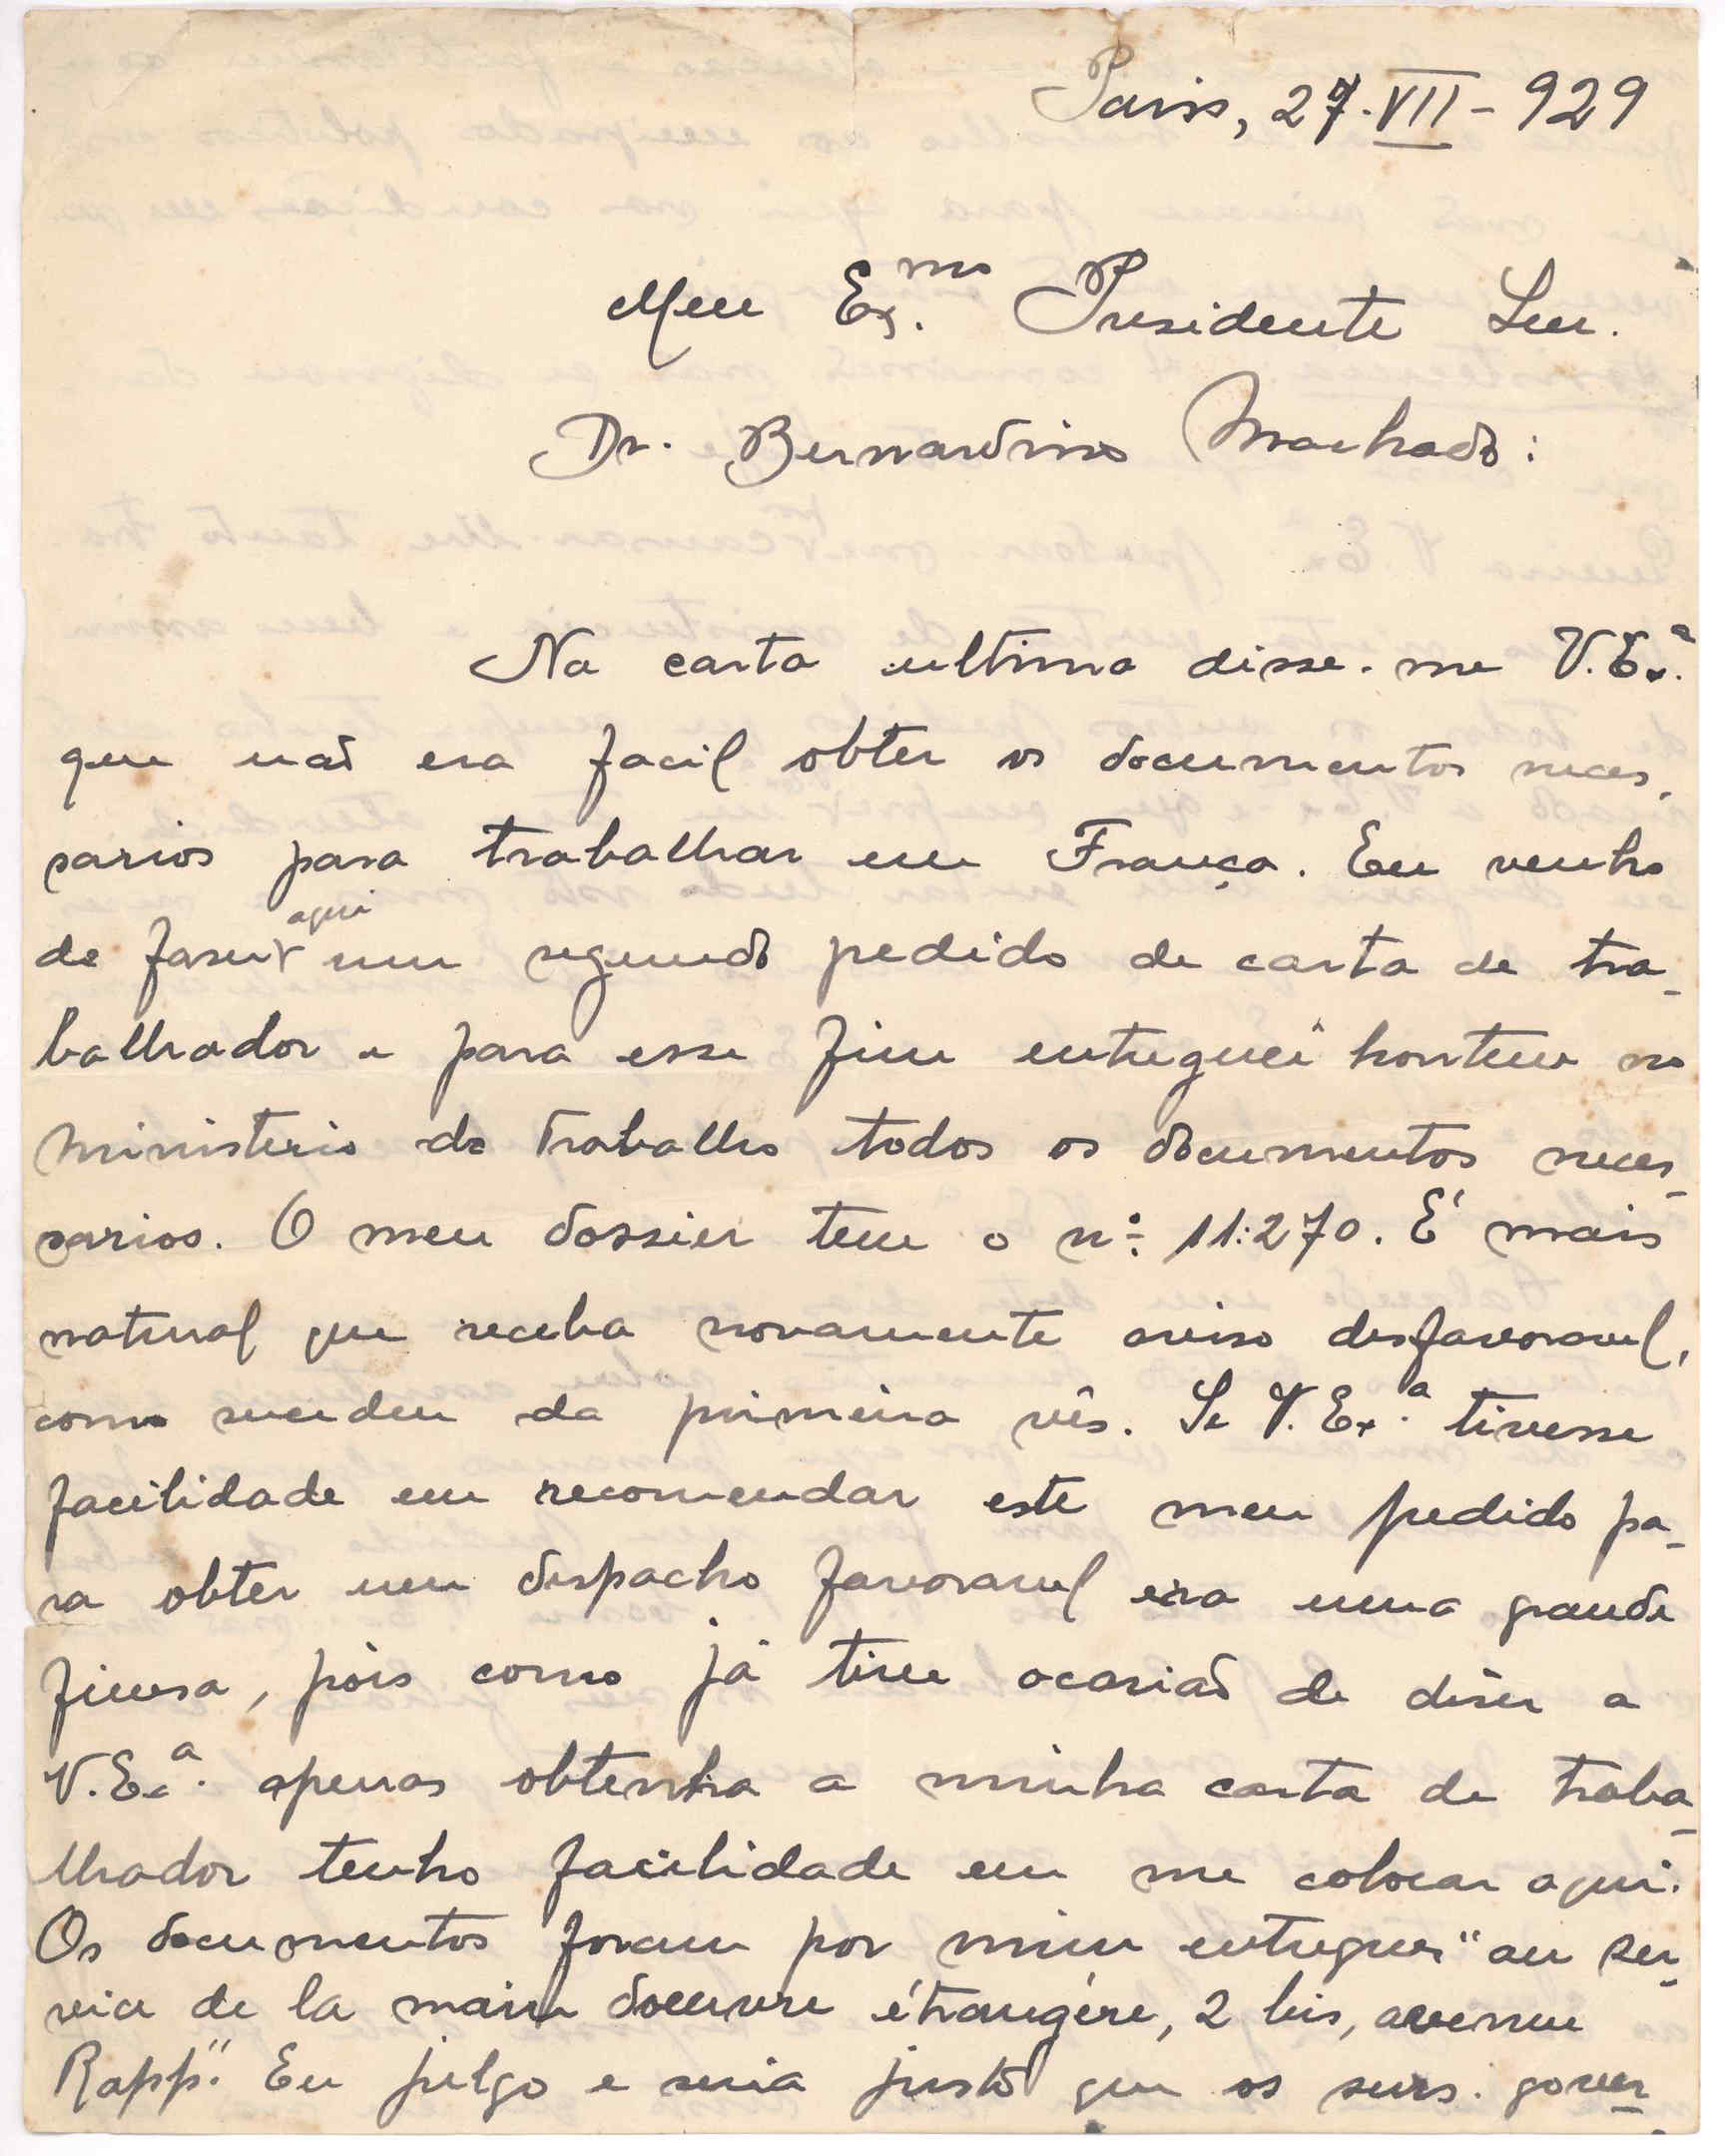 Paris, 27-VII-929
Meu Ex.mo Presidente Snr.
Dr. Bernardino Machado:
Na carta ultima disse-me V. Ex.a
que não era facil obter os documentos neces-
sarios para trabalhar em França. Eu venho
de faser aqui um segundo pedido de carta de tra-
balhador e para esse fim entreguei hontem no
ministerio do trabalho todos os documentos neces-
sarios. O meu dossier tem o nº 11:270. É mais
natural que receba novamente aviso desfavoravel,
como sucedeu da primeira vês. Se V. Ex.a tivesse
facilidade em recomendar este meu pedido pa-
ra obter um despacho favoravel era uma grande
finesa, pois como já tive ocasião de diser a
V. Ex.a apenas obtenha a minha carta de traba-
lhador tenho facilidade em me colocar aqui.
Os documentos foram por mim entregues "au ser-
vice de la main doeuvre étrangére, 2 bis, avenue
Rapp". Eu julgo e seria justo que os snrs. gover-